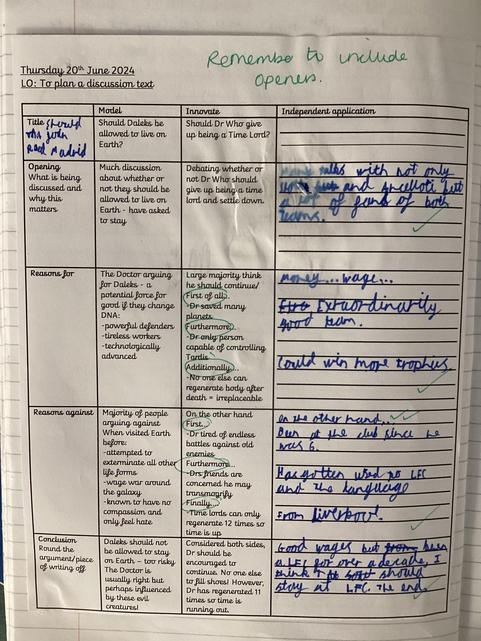 Remember to include
openers.
Thursday 20th June 2024
LO: To plan a discussion text
Model
Innovate
Independent application
Title
Should
join
Real Madrid
Should Daleks be
allowed to live on
Earth?
Should Dr Who give
up being a Time Lord?
Opening
What is being
discussed and
why this
matters
Much discussion
about whether or
not they should be
allowed to live on
Earth – have asked
to stay
Debating whether or
not Dr Who should
give up being a time
lord and settle down.
talks with not only
and but
a lot of fans of both
teams.
Reasons for
The Doctor arguing
for Daleks – a
potential force for
good if they change
DNA:
-powerful defenders
-tireless workers
-technologically
advanced
Large majority think
he should continue/
First of all...
-Dr saved many
planets
Furthermore...
-Dr only person
capable of controlling
Tardis
Additionally...
-No one else can
regenerate body after
death = irreplaceable
money...wage...
Extraordinarily
good team.
Could win more trophys.
Reasons against
Majority of people
arguing against
When visited Earth
before:
-attempted to
exterminate all other
life forms
-wage war around
the galaxy
-known to have no
compassion and
only feel hate
On the other hand
First...
-Dr tired of endless
battles against old
enemies
Furthermore...
-Drs friends are
concerned he may
transmogrify
Finally...
-Time lords can only
regenerate 12 times so
time is up
on the other hand...
Been at the club since he
was 6.
Has gotten used to LFC
and the language
From liverpool.
Conclusion
Round the
argument/piece
of writing off
Daleks should not
be allowed to stay
on Earth – too risky
The Doctor is
usually right but
perhaps influenced
by these evil
creatures!
Considered both sides,
Dr should be
encouraged to
continue. No one else
to fill shoes! However,
Dr has regenerated 11
times so time is
running out.
Good wages but been
a LFC for over a decade, I
think should
stay at LFC. The end.